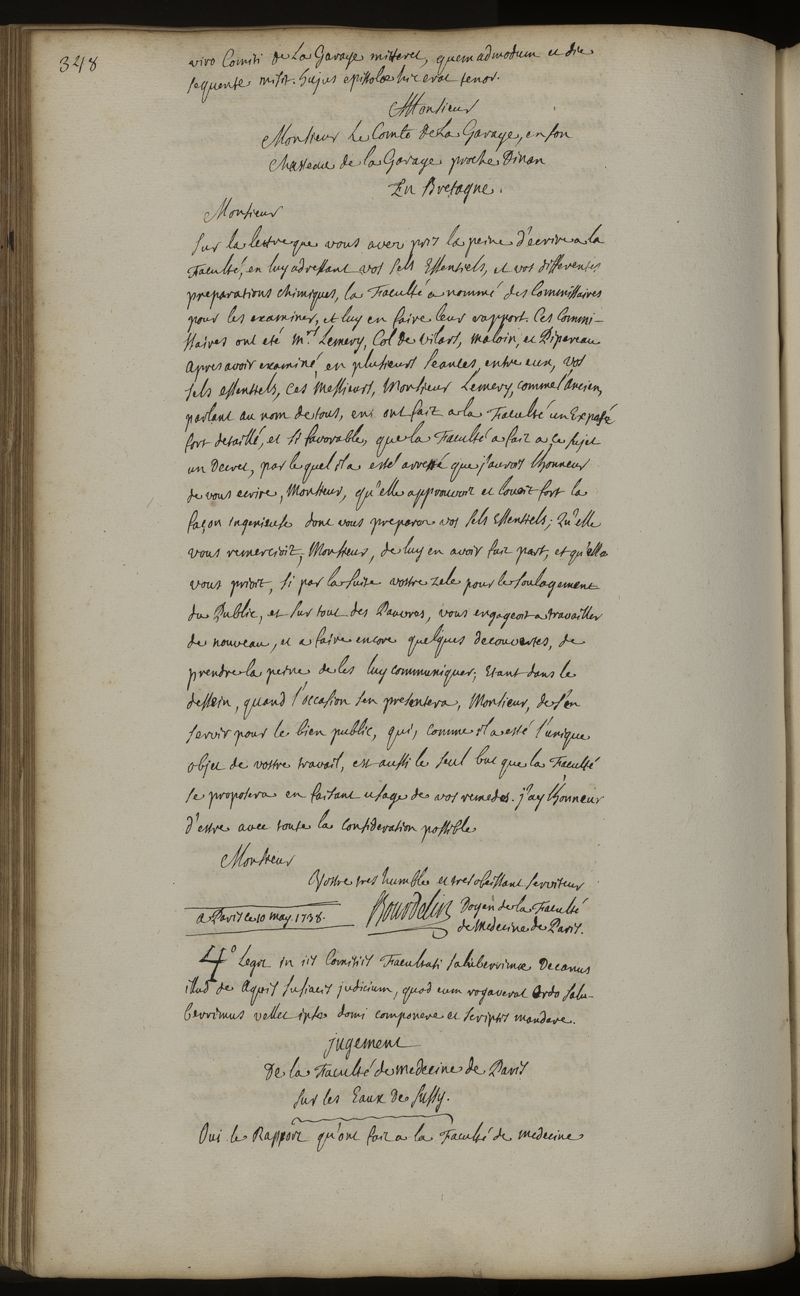 348
viro Comiti de La Garaye mitteret, quemadmodum et die
sequente misit. hujus epistolæ hic erat tenor.
Monsieur
Monsieur Le Comte de La Garaye, en son
Chasteau de la Garaye proche Dinan
En Bretagne.
Monsieur
Sur la lettre que vous avez pris la peine d'ecrire a la
Faculté, en luy adressant vos sels Essentiels, et vos differentes
preparations chimiques, la Faculté a nommé des Commissaires
pour les examiner, et luy en faire leur rapport. Ces Commi-
ssaires ont eté Mrs Lemery, Col de Vilars, Maloin, et Pipereau
Apres avoir examiné en plusieurs seances, entre eux, vos
sels essentiels, ces Messieurs, Monsieur Lemery, comme l'ancien,
parlant au nom de tous, en ont fait a la Faculté un Exposé
fort detaillé, et si favorable, que la Faculté a fait a ce sujet
un Decret, par lequel il a esté arresté que j'aurois l'honneur
de vous ecrire, Monsieur, qu'elle approuvoit et louoit fort la
façon ingenieuse dont vous preparez vos sels Essentiels; Qu'elle
vous remercioit, Monsieur, de luy en avoir fait part, et qu'elle
vous prioit, si par la suite vostre zele pour le soulagement
du Public, et sur tout des Pauvres, vous engageoit a travailler
de nouveau, et a faire encore quelques decouvertes, de
prendre la peine de les luy communiquer; Etant dans le
dessein, quand l'occasion s'en presentera, Monsieur, de s'en
servir pour le bien public, qui, comme il a esté l'unique
objet de vostre travail, est aussi le seul but que la Faculté
se proposera en faisant usage de vos remedes. j'ay l'honneur
d'estre avec toute la consideration possible
Monsieur
Vostre tres humble et tres obeissant serviteur
a Paris ce 10 may 1738. Bourdelin Doyen de la Faculté
de Medecine de Paris.
4° Legit in iis Comitiis Facultati saluberrimæ Decanus
illud de Aquis Susiacis judicium, quod eum rogaverat Ordo Salu-
berrimus vellet ipse domi componere et scriptis mandare.
jugement
De la Faculté de medecine de Paris
sur les Eaux de Sussy.
Oui le Rapport qu'ont fait a la Faculté de medecine